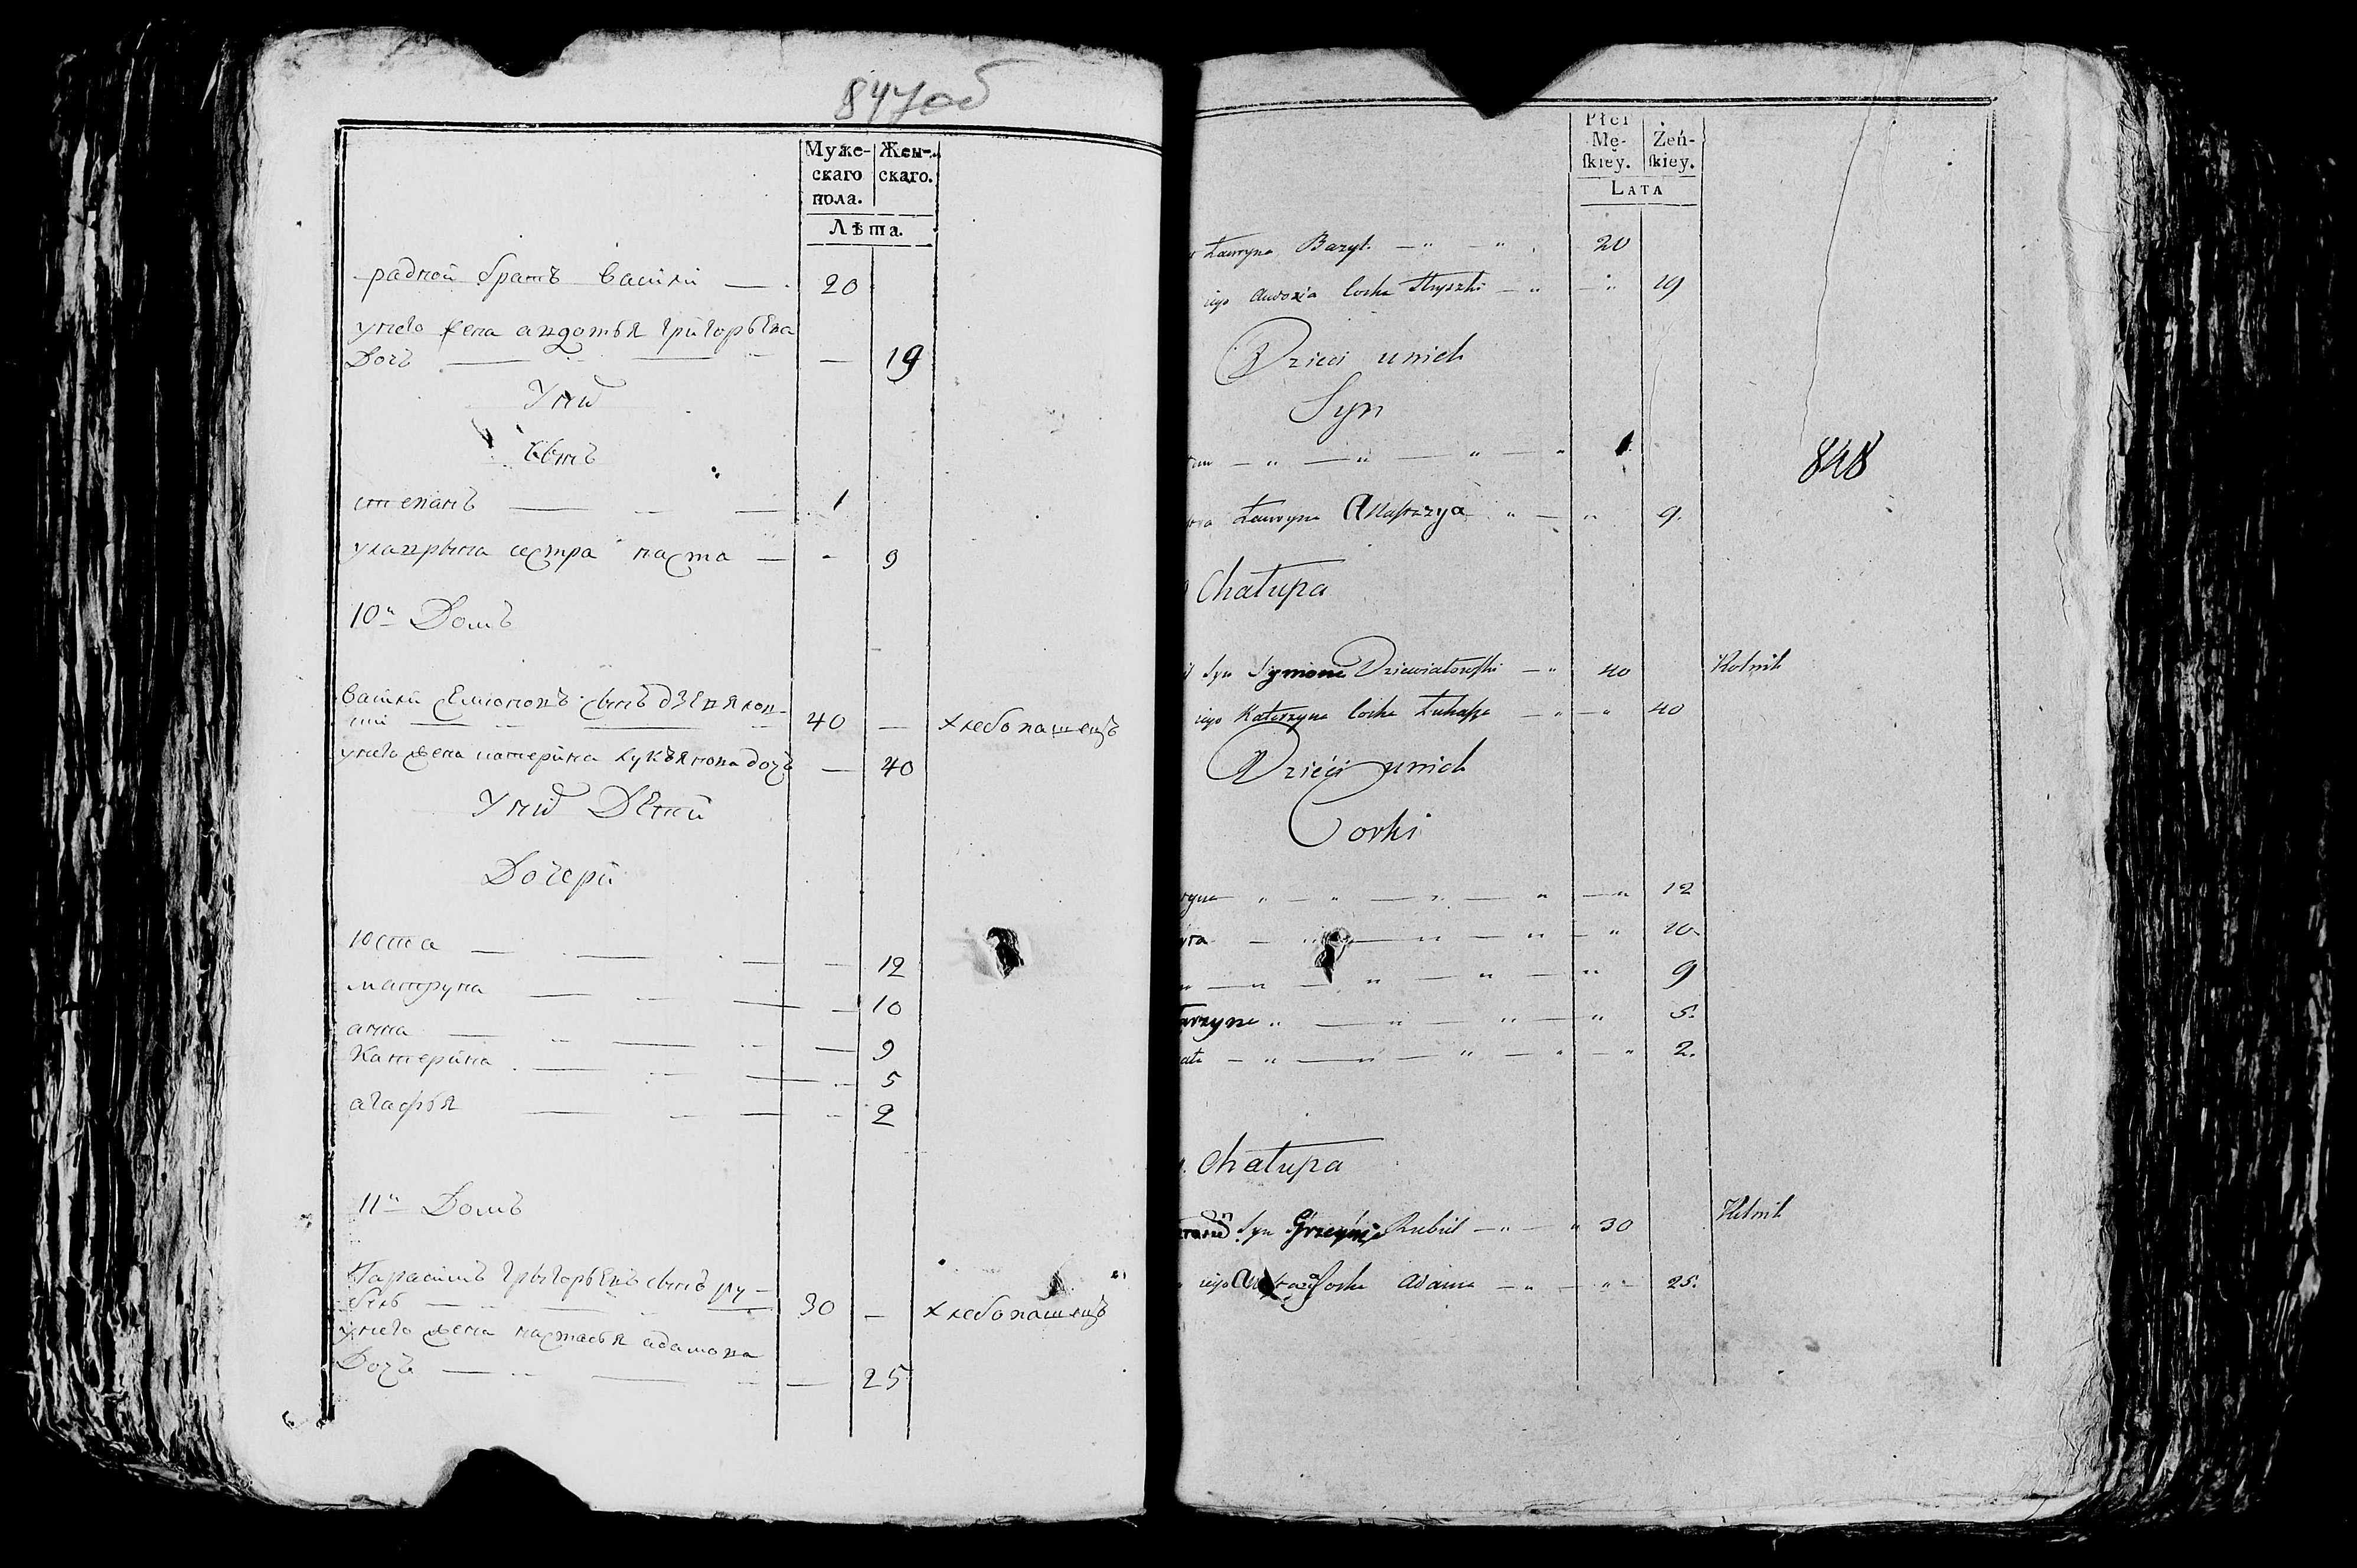 847об
Муже-
скаго
пола.
Жен-
скаго.
Лѣта.
радной братъ васили — 20
унего жена авдотья григорьева
Дочъ — — 19
У них
сынъ
степанъ — 1
улаврына сестра наста — - 9
10й Домъ
васили семионовъ сынъ дзевялов-
ски — 40 — хлебопашецъ
унего жена катерина лукъянова дочъ — 40
У них Дети
Дочери
Юста — 12
матруна — 10
анна — 9
Катерина — 5
агафья — 2
11й Домъ
Гарасимъ григорьевъ сынъ ру-
бель — 30 — хлебопашецъ
унего жена настасья адамова
Дочъ — — 25
Płci
Mę-
ſkiey.
Żeń-
ſkiey.
LATA
Ławryna Bazyl. — 20
iego Awdoxia Corka Hryszki — 19
Dzieci unich
Syn
— 1
848
Ławryna Anastazya — 9.
Chałupa
Syn Symona Dziewiatowski — 40 Rolnik
iego Katerzyna Corka Łukasza — 40
Dzieci unich
Corki
— 12
— 10
— 9
arzyna — 5.
— 2.
Chałupa
Syn Grzegorz Rubiel — 30 Rolnik
iego Corka Adama — 25.